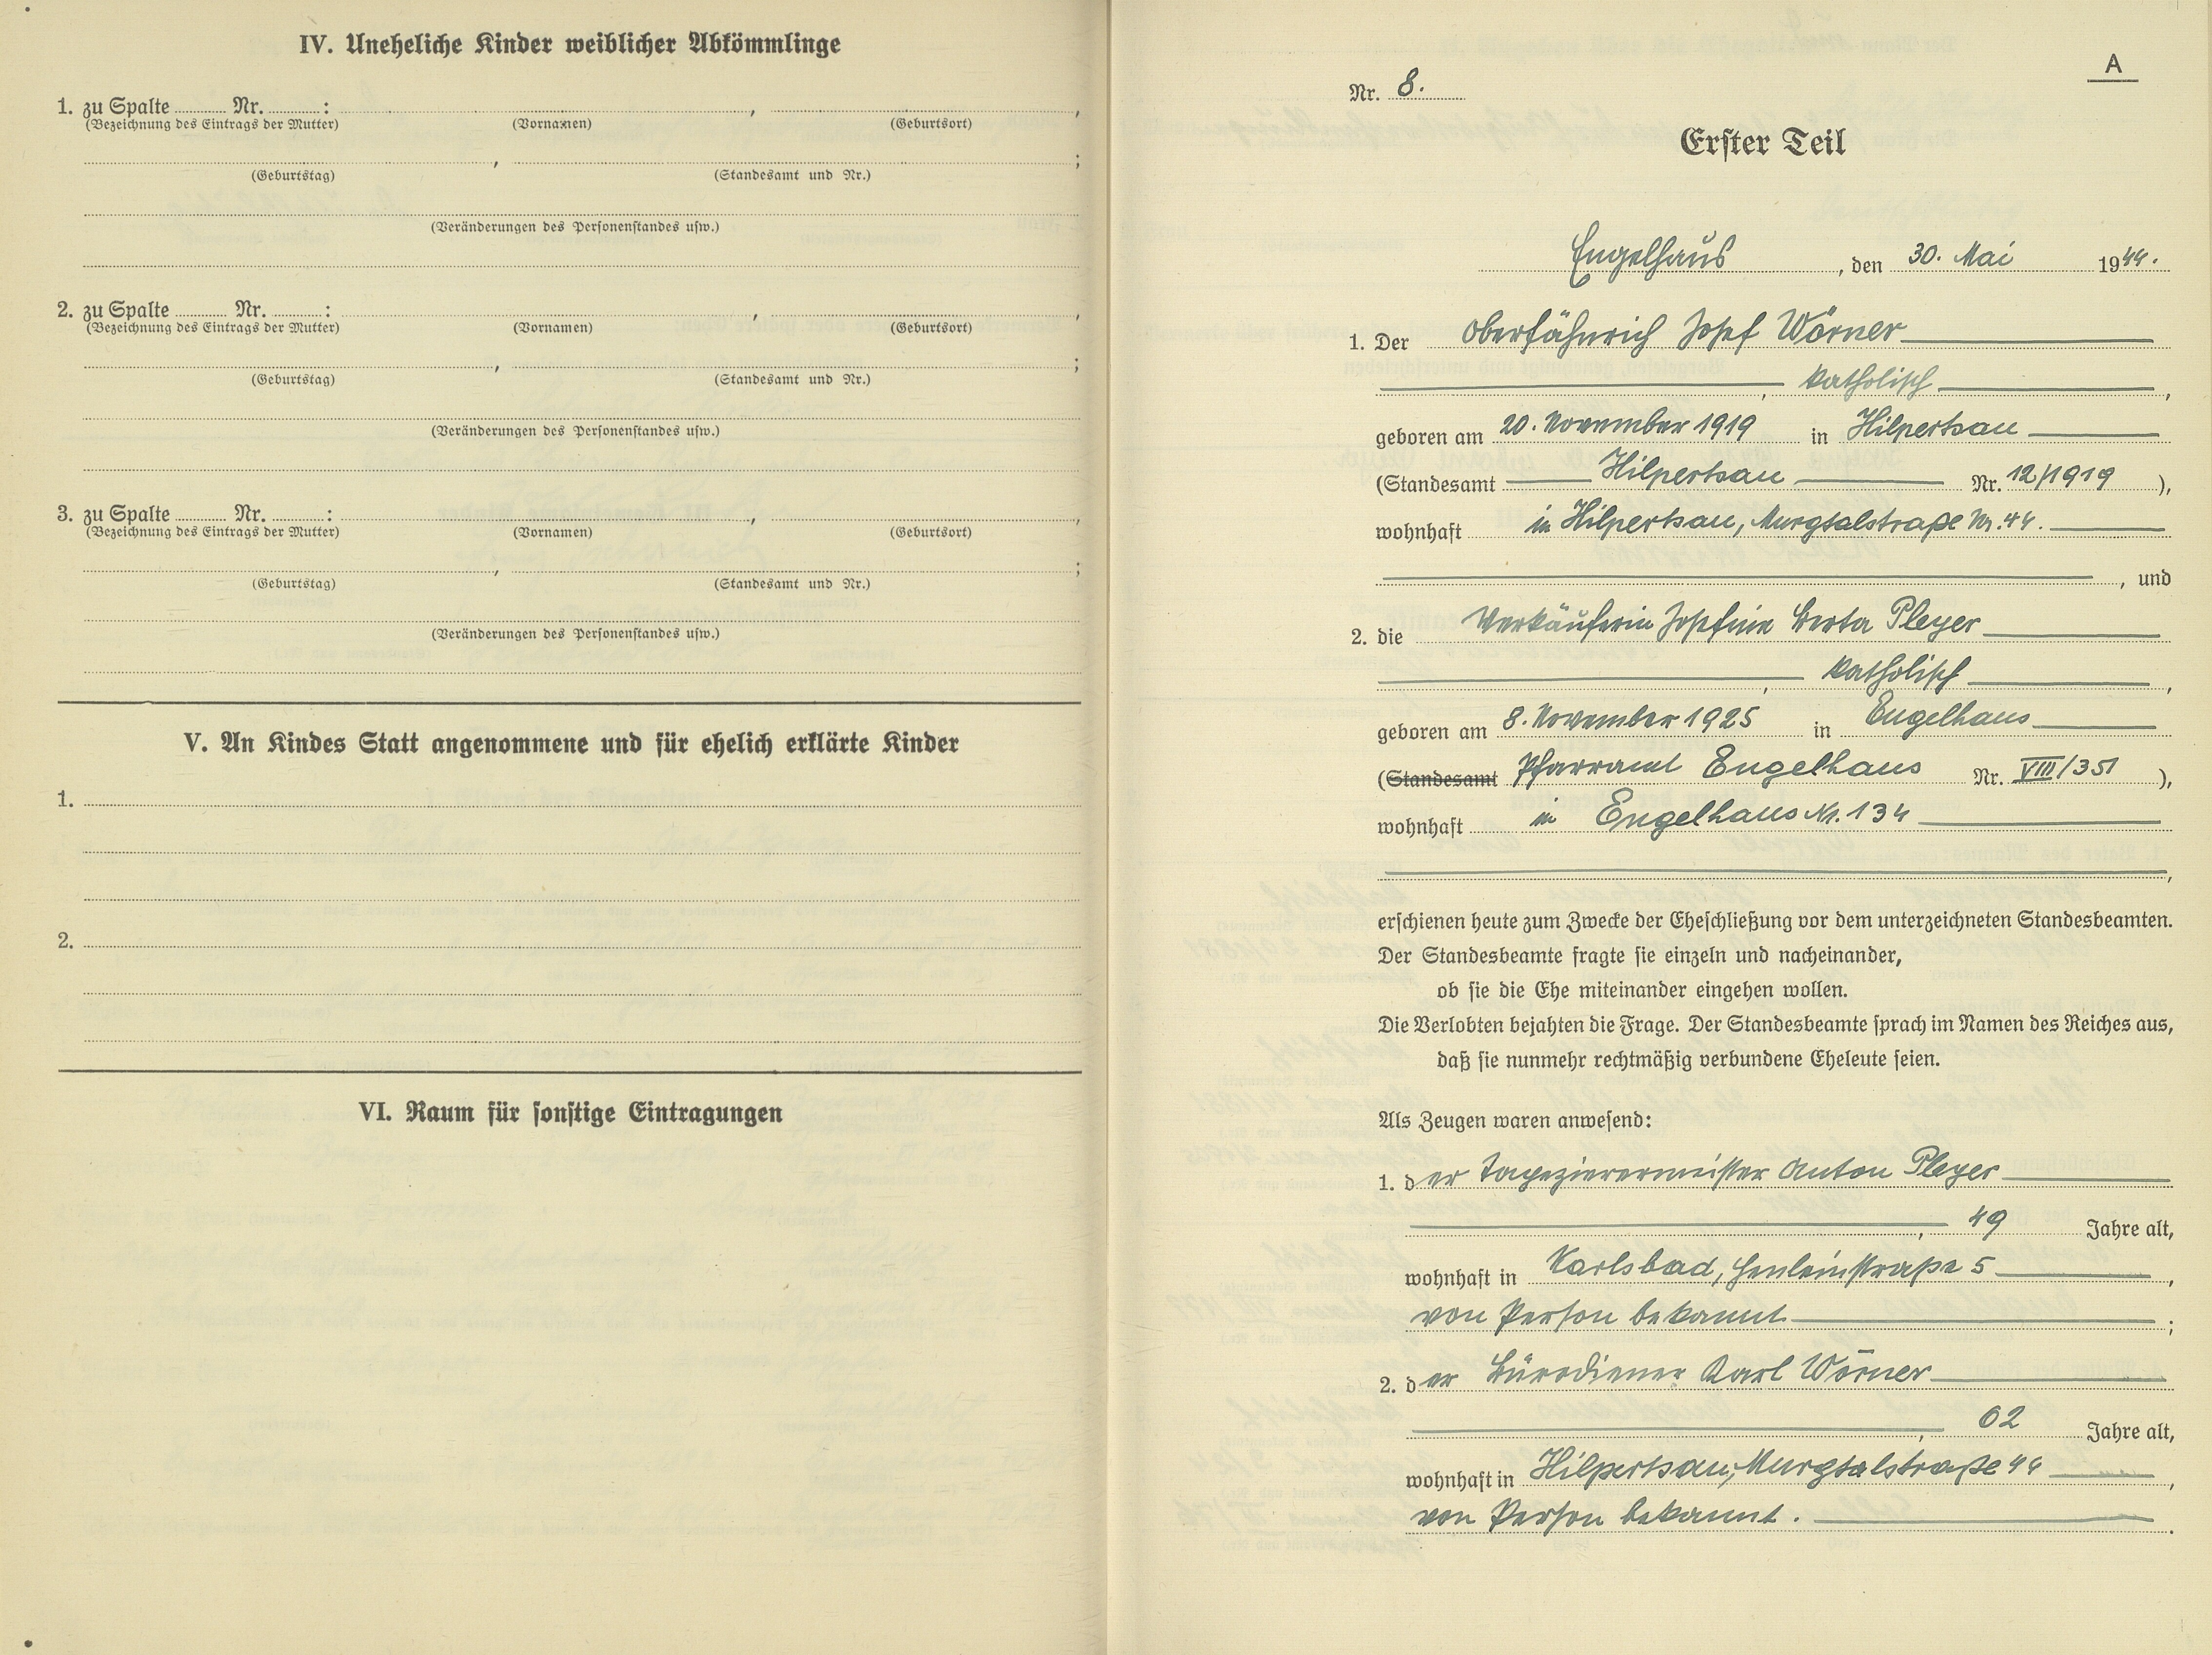 IV. Uneheliche Kinder weiblicher Abkömmlinge
1. zu Spalte ........ Nr. ........ : , ,
(Bezeichnung des Eintrags der Mutter) (Vornamen) (Geburtsort)
, ;
(Geburtstag) (Standesamt und Nr.)
(Veränderungen des Personenstandes usw.)
2. zu Spalte ........ Nr. ........ : , ,
(Bezeichnung des Eintrags der Mutter) (Vornamen) (Geburtsort)
, ;
(Geburtstag) (Standesamt und Nr.)
(Veränderungen des Personenstandes usw.)
3. zu Spalte ........ Nr. ........ : , ,
(Bezeichnung des Eintrags der Mutter) (Vornamen) (Geburtsort)
, ;
(Geburtstag) (Standesamt und Nr.)
(Veränderungen des Personenstandes usw.)
V. An Kindes Statt angenommene und für ehelich erklärte Kinder
1.
2.
VI. Raum für sonstige Eintragungen
A
Nr. 8.
Erster Teil
Engelhaus, den 30. Mai 1944.
1. Der Oberfähnrich Josef Wörner
, katholisch ,
geboren am 20. November 1919 in Hilpertsau
(Standesamt Hilpertsau Nr. 12/1919 ),
wohnhaft in Hilpertsau, Murgtalstraße Nr. 44.
, und
2. die Verkäuferin Josefine Berta Pleyer
, katholisch ,
geboren am 8. November 1925 in Engelhaus
(Standesamt Pfarramt Engelhaus Nr. VIII/351 ),
wohnhaft in Engelhaus Nr. 134
,
erschienen heute zum Zwecke der Eheschließung vor dem unterzeichneten Standesbeamten.
Der Standesbeamte fragte sie einzeln und nacheinander,
ob sie die Ehe miteinander eingehen wollen.
Die Verlobten bejahten die Frage. Der Standesbeamte sprach im Namen des Reiches aus,
daß sie nunmehr rechtmäßig verbundene Eheleute seien.
Als Zeugen waren anwesend:
1. der Tapezierermeister Anton Pleyer
, 49 Jahre alt,
wohnhaft in Karlsbad, Henleinstraße 5 ,
von Person bekannt ;
2. der Bürodiener Karl Wörner
, 62 Jahre alt,
wohnhaft in Hilpertsau, Murgtalstraße 44 ,
von Person bekannt. .